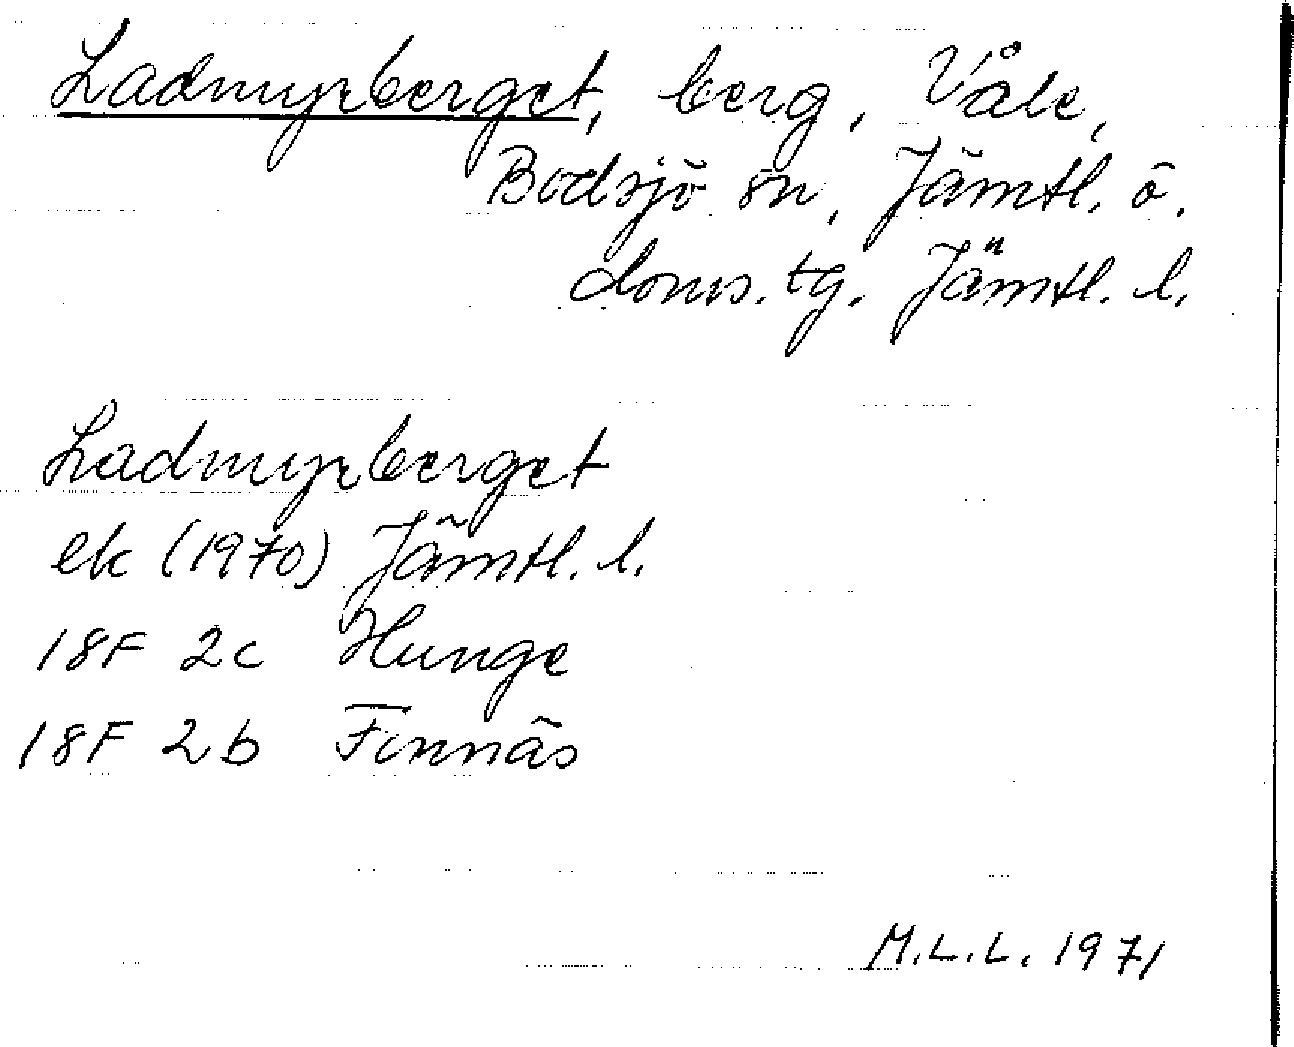 Ladmyrberget, berg, Våle,
Bodsjö sn, Jämtl. ö.
doms. tg. Jämtl. l.
Ladmyrberget
ek (1970) Jämtl. l.
18F 2c Hunge
18F 2b Finnäs
M.L.L. 1971